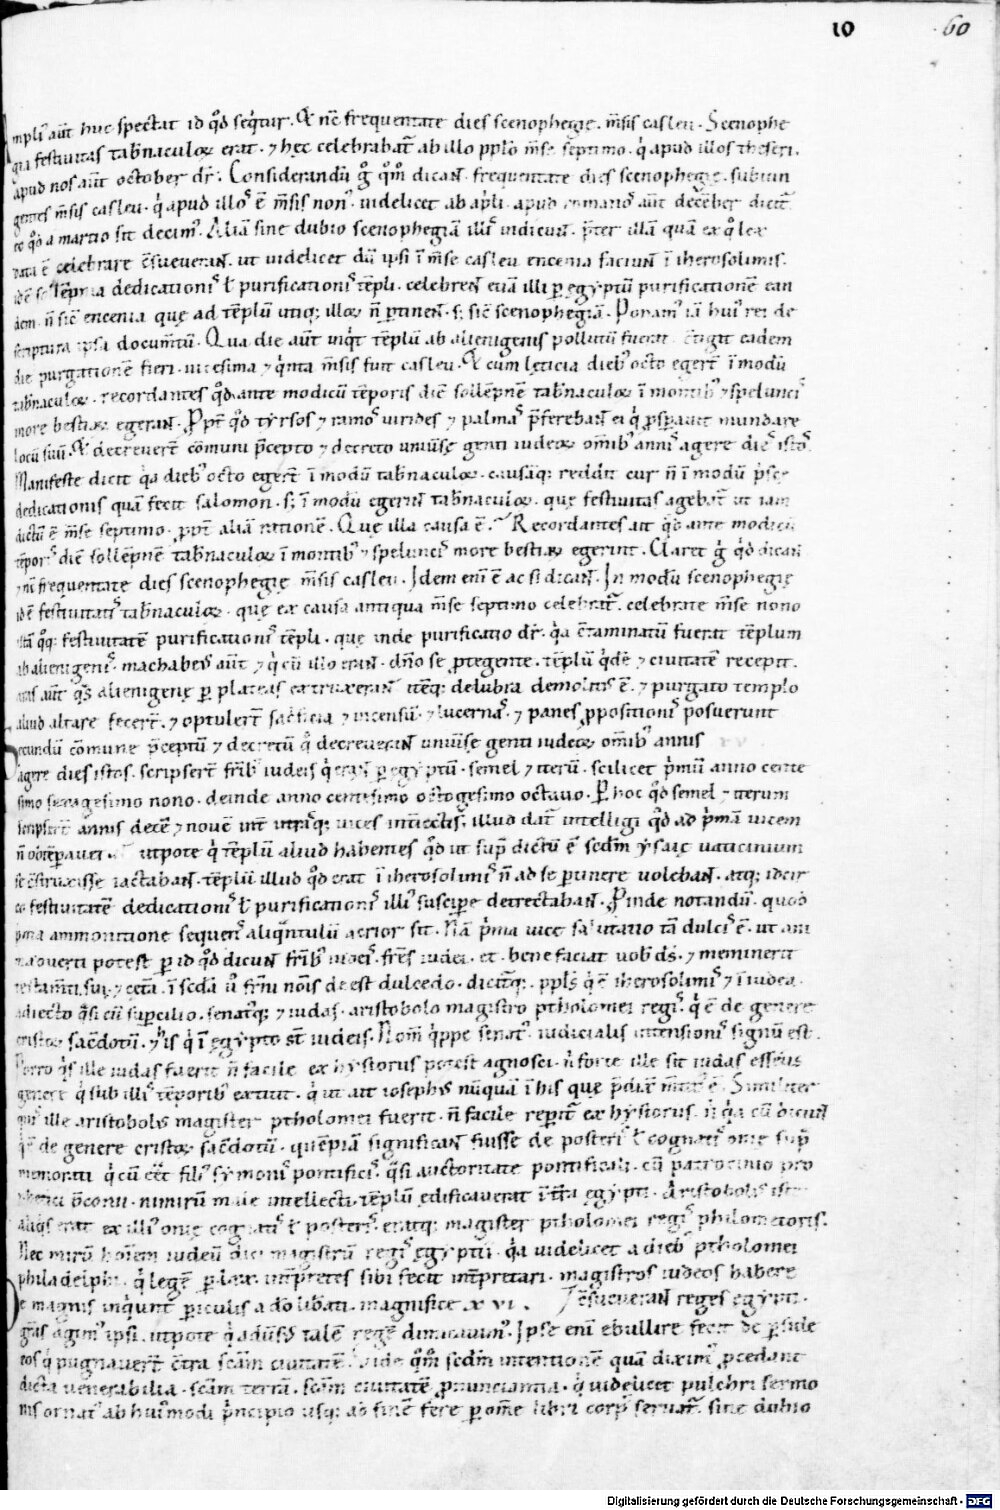 10 60
aut̄ huc spectat id qͦd seqͥtur. Et nc̄ frequentate dies scenophegię. m̄sis casleu. Scenophe
gia festiuitas tab̄naculoꝝ erat. ⁊ hęc celebrabat̄ ab illo pplo m̄se septimo. qͥ apud illos theseri.
apud nos aut̄ october dr̄. Considerandū gͦ qͦm̄ dican̄. frequentate dies scenophegię. subiun
gentes m̄sis casleu. qͥ apud illoˢ ē m̄sis nonꝰ. uidelicet ab apͥli. apud romanoˢ aut̄ decēber dicit̄
eo qͦd a martio sit decimꝰ. Aliā sine dubio scenophegiā illiˢ indicun̄. p̄ter illā quā ex qͦ lex
data ē celebrare c̄sueueran̄. ut uidelicet dū ipsi ī m̄se casleu encenia faciun̄ ī iherosolimis.
dedicationiˢ ł purificationiˢ tēpli. celebren̄ etiā illi ꝑ ęgyptū purificationē ean
dem. n̄ sic̄ encenia quę ad tēplū utiqꝫ illoꝝ n̄ ꝑtinen̄. sꝫ sic̄ scenophegiā. Ponamꝰ iā huiꝰ rei de
scriptura ipsa documm̄tū. Qua die aut̄ inqͥt tēplū ab alienigenis pollutū fuerat c̄tigit eadem
die purgationē fieri. uicesima ⁊ qͥnta m̄sis fuit casleu. Et cum lęticia diebꝰ octo egerr̄t ī modū
tab̄naculoꝝ. recordantes qͦd ante modicū tēporis diē sollēpnē tab̄naculoꝝ ī montibꝰ ⁊ speluncˢ
more bestiaꝝ egeran̄. Ꝓpt̄ qͦd tyrsos ⁊ ramoˢ uirides ⁊ palmaˢ p̄fereban̄ ei qͥ ꝓspauit mundare
locū suū. Et decreuerr̄t cōmuni p̄cepto ⁊ decreto uniuīse genti iudeoꝝ om̄ibꝰ anniˢ agere dieˢ istoˢ.
Manifeste dicit qͥa diebꝰ octo egerr̄t ī modū tab̄naculoꝝ. causāqꝫ reddit cur n̄ ī modū
dedicationis quā fecit salomon. sꝫ ī modū egerint tab̄naculoꝝ. quę festiuitas agebat̄ ut iam
dictū ē m̄se septimo. ꝓpt̄ aliā rationē. Quę illa causa ē. Recordantes ait qͦd ante modicū
tēporˢ diē sollēpnē tab̄naculoꝝ ī montibꝰ ⁊ speluncˢ more bestiaꝝ egerint. Claret gͦ qͦd dican̄
⁊ nc̄ frequentate dies scenophegię m̄sis casleu. Idem eni ē ac si dican̄. In modū scenophegię
id ē festiuitatˢ tab̄naculoꝝ. quę ex causa antiqua m̄se septimo celebrat̄. celebrate m̄se nono
festiuitatē purificationiˢ tēpli. quę inde purificatio dr̄. qͥa c̄taminatū fuerat tēplum
ab alienigeniˢ. machabeˢ aut̄ ⁊ qͥ cū illo eran̄. dn̄o se ꝓtegente. tēplū qͥdē ⁊ ciuitatē recepit.
aras aut̄ qͣs alienigenę ꝑ plateas extruxeran̄ itēqꝫ delubra demolitˢ ē. ⁊ purgato templo
aliud altare fecerr̄t. ⁊ optulerr̄t sac̄ficia ⁊ incensū. ⁊ lucernaˢ. ⁊ panes ꝓpositioniˢ posuerunt
Secundū cōmune p̄ceptū ⁊ decretū qͦ decreueran̄ uniuīse genti iudeoꝝ om̄ibꝰ annis
agere dies istos. scripserr̄t frībꝰ iudeis qͥ eran̄ ꝑ ęgyptū. semel ⁊ iterū. scilicet pͥmū anno cente
simo sexagesimo nono. deinde anno centesimo octogesimo octauo. Ꝑ hoc qͦd semel ⁊ iterum
scripserr̄t annis decē ⁊ nouē int̄ utrāqꝫ uices int̄iectiˢ. illud dat̄ intelligi qͦd ad pͥmā uicem
utpote qͥ tēplū aliud habentes qͦd ut supͣ dictū ē scdm̄ ysaię uaticinium
se c̄struxisse iactaban̄. tēplū illud qͦd erat ī iherosolimiˢ n̄ ad se ꝑtinere uoleban̄. atqꝫ idcir
co festiuitatē dedicationiˢ ł purificationiˢ illiˢ suscipe detrectaban̄. Ꝓinde notandū. quod
pͥma ammonitione sequenˢ aliqͣntulū acrior sit. Nā pͥma uice salutatio tā dulcˢ ē. ut ani
maduerti potest ꝑ id qͦd dicun̄ frībꝰ iudeiˢ. frēs iudei. et bene faciat uob̄ ds̄. ⁊ meminerit
testam̄ti sui. ⁊ ceta. ī scd̄a ū frn̄u nōis deest dulcedo. dicit̄qꝫ. pplˢ qͥ ē iherosolimiˢ ⁊ ī iudea.
adiecto qͣsi cū supcilio. senatˢqꝫ ⁊ iudas. aristobolo magistro ptholomei regiˢ. qͥ ē de genere
cristoꝝ sac̄dotū. ⁊ hˢ qͥ ī ęgypto st̄ iudeis. Nom̄ qͥppe senatˢ. iudicialis intensioniˢ signū est.
Porro qͣs ille iudas fuerit n̄ facile ex hystoriis potest agnosci. nͥ forte ille sit iudas essēus
genere qͥ sub illiˢ tēporibꝰ extitit. qͥ ut ait iosephˢ nūquā ī his quę p̄dixit Similiter
ille aristobolˢ magister ptholomei fuerit. n̄ facile reperit̄ ex hystoriis. nͥ qͥa cū dicun̄
qͥ ē de genere cristoꝝ sac̄dotū. quēpiā significan̄ fuisse de posteriˢ ł cognatiˢ onię supͣ
memorati qͥ cū eēt filiꝰ symoniˢ pontificˢ. qͣsi auctoritate pontificali. cū patrocinio pro
phetici p̄conii. nimirū male intellecti. tēplū edificauerat ī tr̄a ęgypti. Aristobolˢ iste
aliqͣs erat ex illiˢ onię cognatiˢ ł posteriˢ. eratqꝫ magister ptholomei regiˢ philometoris.
Nec mirū hoīem iudeū dici magistrū regiˢ ęgyptii. qͥa uidelicet a diebꝰ ptholomei
philadelphi. qͥ legē ꝑ lxx. int̄pretes sibi fecit int̄pretari. magistros iudeos habere
De magnis inqͥunt ꝑiculis a dō libati. magnifice xvi. c̄sueueran̄ reges ęgypti.
grās agimꝰ ipsi. utpote qͥ aduīsˢ talē regē dimicauimꝰ. Ipse eni ebullire fecit de ꝑside
eos qͥ pugnauerr̄t c̄tra scām ciuitatē. Vide qͦm̄ scdm̄ intentionē quā diximꝰ ꝓcedant
dicta uenerabilia. scām terrā. scām ciuitatē ꝓnunciantia. qͥ uidelicet pulchri sermo
nis ornatˢ ab huiꝰmodi pͥncipio usqꝫ ad finē fere ꝑ om̄e libri corpˢ seruat̄. sine dubio
Digitalisierung gefördert durch die Deutsche Forschungsgemeinschaft - DFG